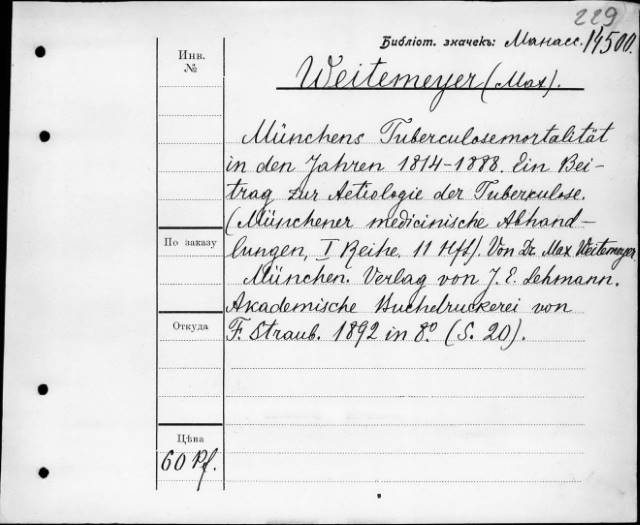 229
Библіот. значекъ: Манасс. 14500.
Инв.
№
Weitemeyer (Max).
Münchens Tuberculosemortalität
in den Jahren 1814-1888. Ein Bei-
trag zur Aetiologie der Tuberkulose.
(Münchener medicinische Abhand-
lungen, I Reihe. 11 Hft). Von Dr. Max Weitemeyer
München. Verlag von J. E. Lehmann.
Akademische Buchdruckerei von
F. Straub. 1892 in 8º (S. 20).
По заказу
Откуда
Цѣна
60 Pf.